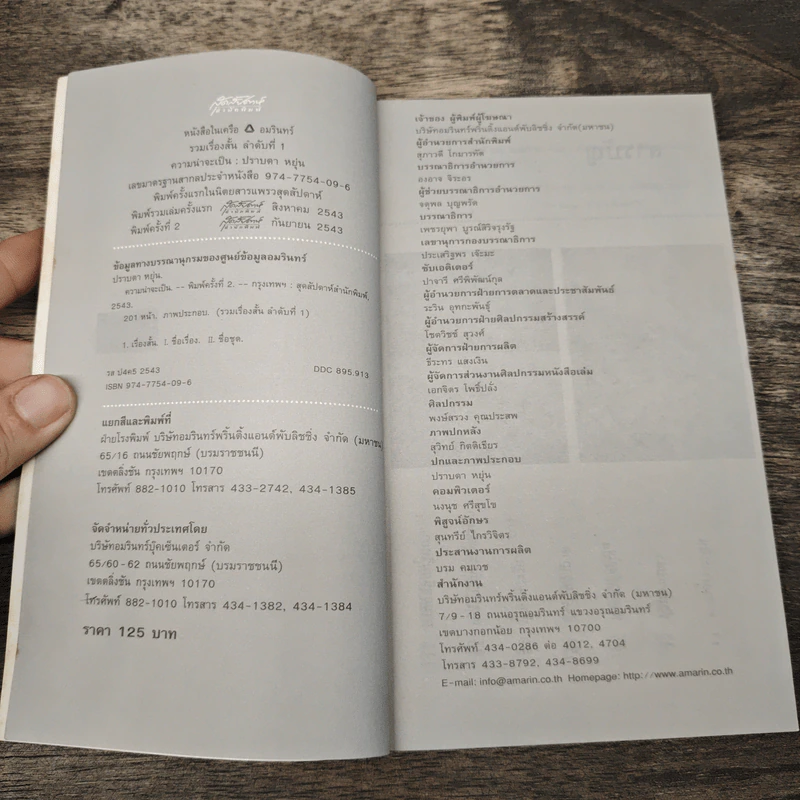 สุดสัปดาห์
สำนักพิมพ์
หนังสือในเครือ อมรินทร์
รวมเรื่องสั้น ลำดับที่ 1
ความน่าจะเป็น : ปราบดา หยุ่น
เลขมาตรฐานสากลประจำหนังสือ 974-7754-09-6
พิมพ์ครั้งแรกในนิตยสารแพรวสุดสัปดาห์
พิมพ์รวมเล่มครั้งแรก สุดสัปดาห์ สำนักพิมพ์ สิงหาคม 2543
พิมพ์ครั้งที่ 2 สุดสัปดาห์ สำนักพิมพ์ กันยายน 2543
ข้อมูลทางบรรณานุกรมของศูนย์ข้อมูลอมรินทร์
ปราบดา หยุ่น.
ความน่าจะเป็น. -- พิมพ์ครั้งที่ 2. -- กรุงเทพฯ : สุดสัปดาห์สำนักพิมพ์,
2543.
201 หน้า. ภาพประกอบ. (รวมเรื่องสั้น ลำดับที่ 1)
1. เรื่องสั้น. I. ชื่อเรื่อง. II. ชื่อชุด.
รส ป4ค5 2543 DDC 895.913
ISBN 974-7754-09-6
แยกสีและพิมพ์ที่
ฝ่ายโรงพิมพ์ บริษัทอมรินทร์พริ้นติ้งแอนด์พับลิชชิ่ง จำกัด (มหาชน)
65/16 ถนนชัยพฤกษ์ (บรมราชชนนี)
เขตตลิ่งชัน กรุงเทพฯ 10170
โทรศัพท์ 882-1010 โทรสาร 433-2742, 434-1385
จัดจำหน่ายทั่วประเทศโดย
บริษัทอมรินทร์บุ๊คเซ็นเตอร์ จำกัด
65/60-62 ถนนชัยพฤกษ์ (บรมราชชนนี)
เขตตลิ่งชัน กรุงเทพฯ 10170
โทรศัพท์ 882-1010 โทรสาร 434-1382, 434-1384
ราคา 125 บาท
เจ้าของ ผู้พิมพ์ผู้โฆษณา
บริษัทอมรินทร์พริ้นติ้งแอนด์พับลิชชิ่ง จำกัด(มหาชน)
ผู้อำนวยการสำนักพิมพ์
สุภาวดี โกมารทัต
บรรณาธิการอำนวยการ
องอาจ จิระอร
ผู้ช่วยบรรณาธิการอำนวยการ
จตุพล บุญพรัด
บรรณาธิการ
เพชรยุพา บูรณ์สิริจรุงรัฐ
เลขานุการกองบรรณาธิการ
ประเสริฐพร เจ๊ะมะ
ซับเอดิเตอร์
ปาจารี ศรีพิพัฒน์กุล
ผู้อำนวยการฝ่ายการตลาดและประชาสัมพันธ์
ระริน อุทกะพันธุ์
ผู้อำนวยการฝ่ายศิลปกรรมสร้างสรรค์
โชตวิชช์ สุวงศ์
ผู้จัดการฝ่ายการผลิต
ธีระทร แสงเงิน
ผู้จัดการส่วนงานศิลปกรรมหนังสือเล่ม
เอกจิตร โพธิ์ปลั่ง
ศิลปกรรม
พงษ์สรวง คุณประสพ
ภาพปกหลัง
สุวิทย์ กิตติเธียร
ปกและภาพประกอบ
ปราบดา หยุ่น
คอมพิวเตอร์
นงนุช ศรีสุขโข
พิสูจน์อักษร
สุนทรีย์ ไกรวิจิตร
ประสานงานการผลิต
บรม คมเวช
สำนักงาน
บริษัทอมรินทร์พริ้นติ้งแอนด์พับลิชชิ่ง จำกัด (มหาชน)
7/9-18 ถนนอรุณอมรินทร์ แขวงอรุณอมรินทร์
เขตบางกอกน้อย กรุงเทพฯ 10700
โทรศัพท์ 434-0286 ต่อ 4012, 4704
โทรสาร 433-8792, 434-8699
E-mail: info@amarin.co.th Homepage: http://www.amarin.co.th